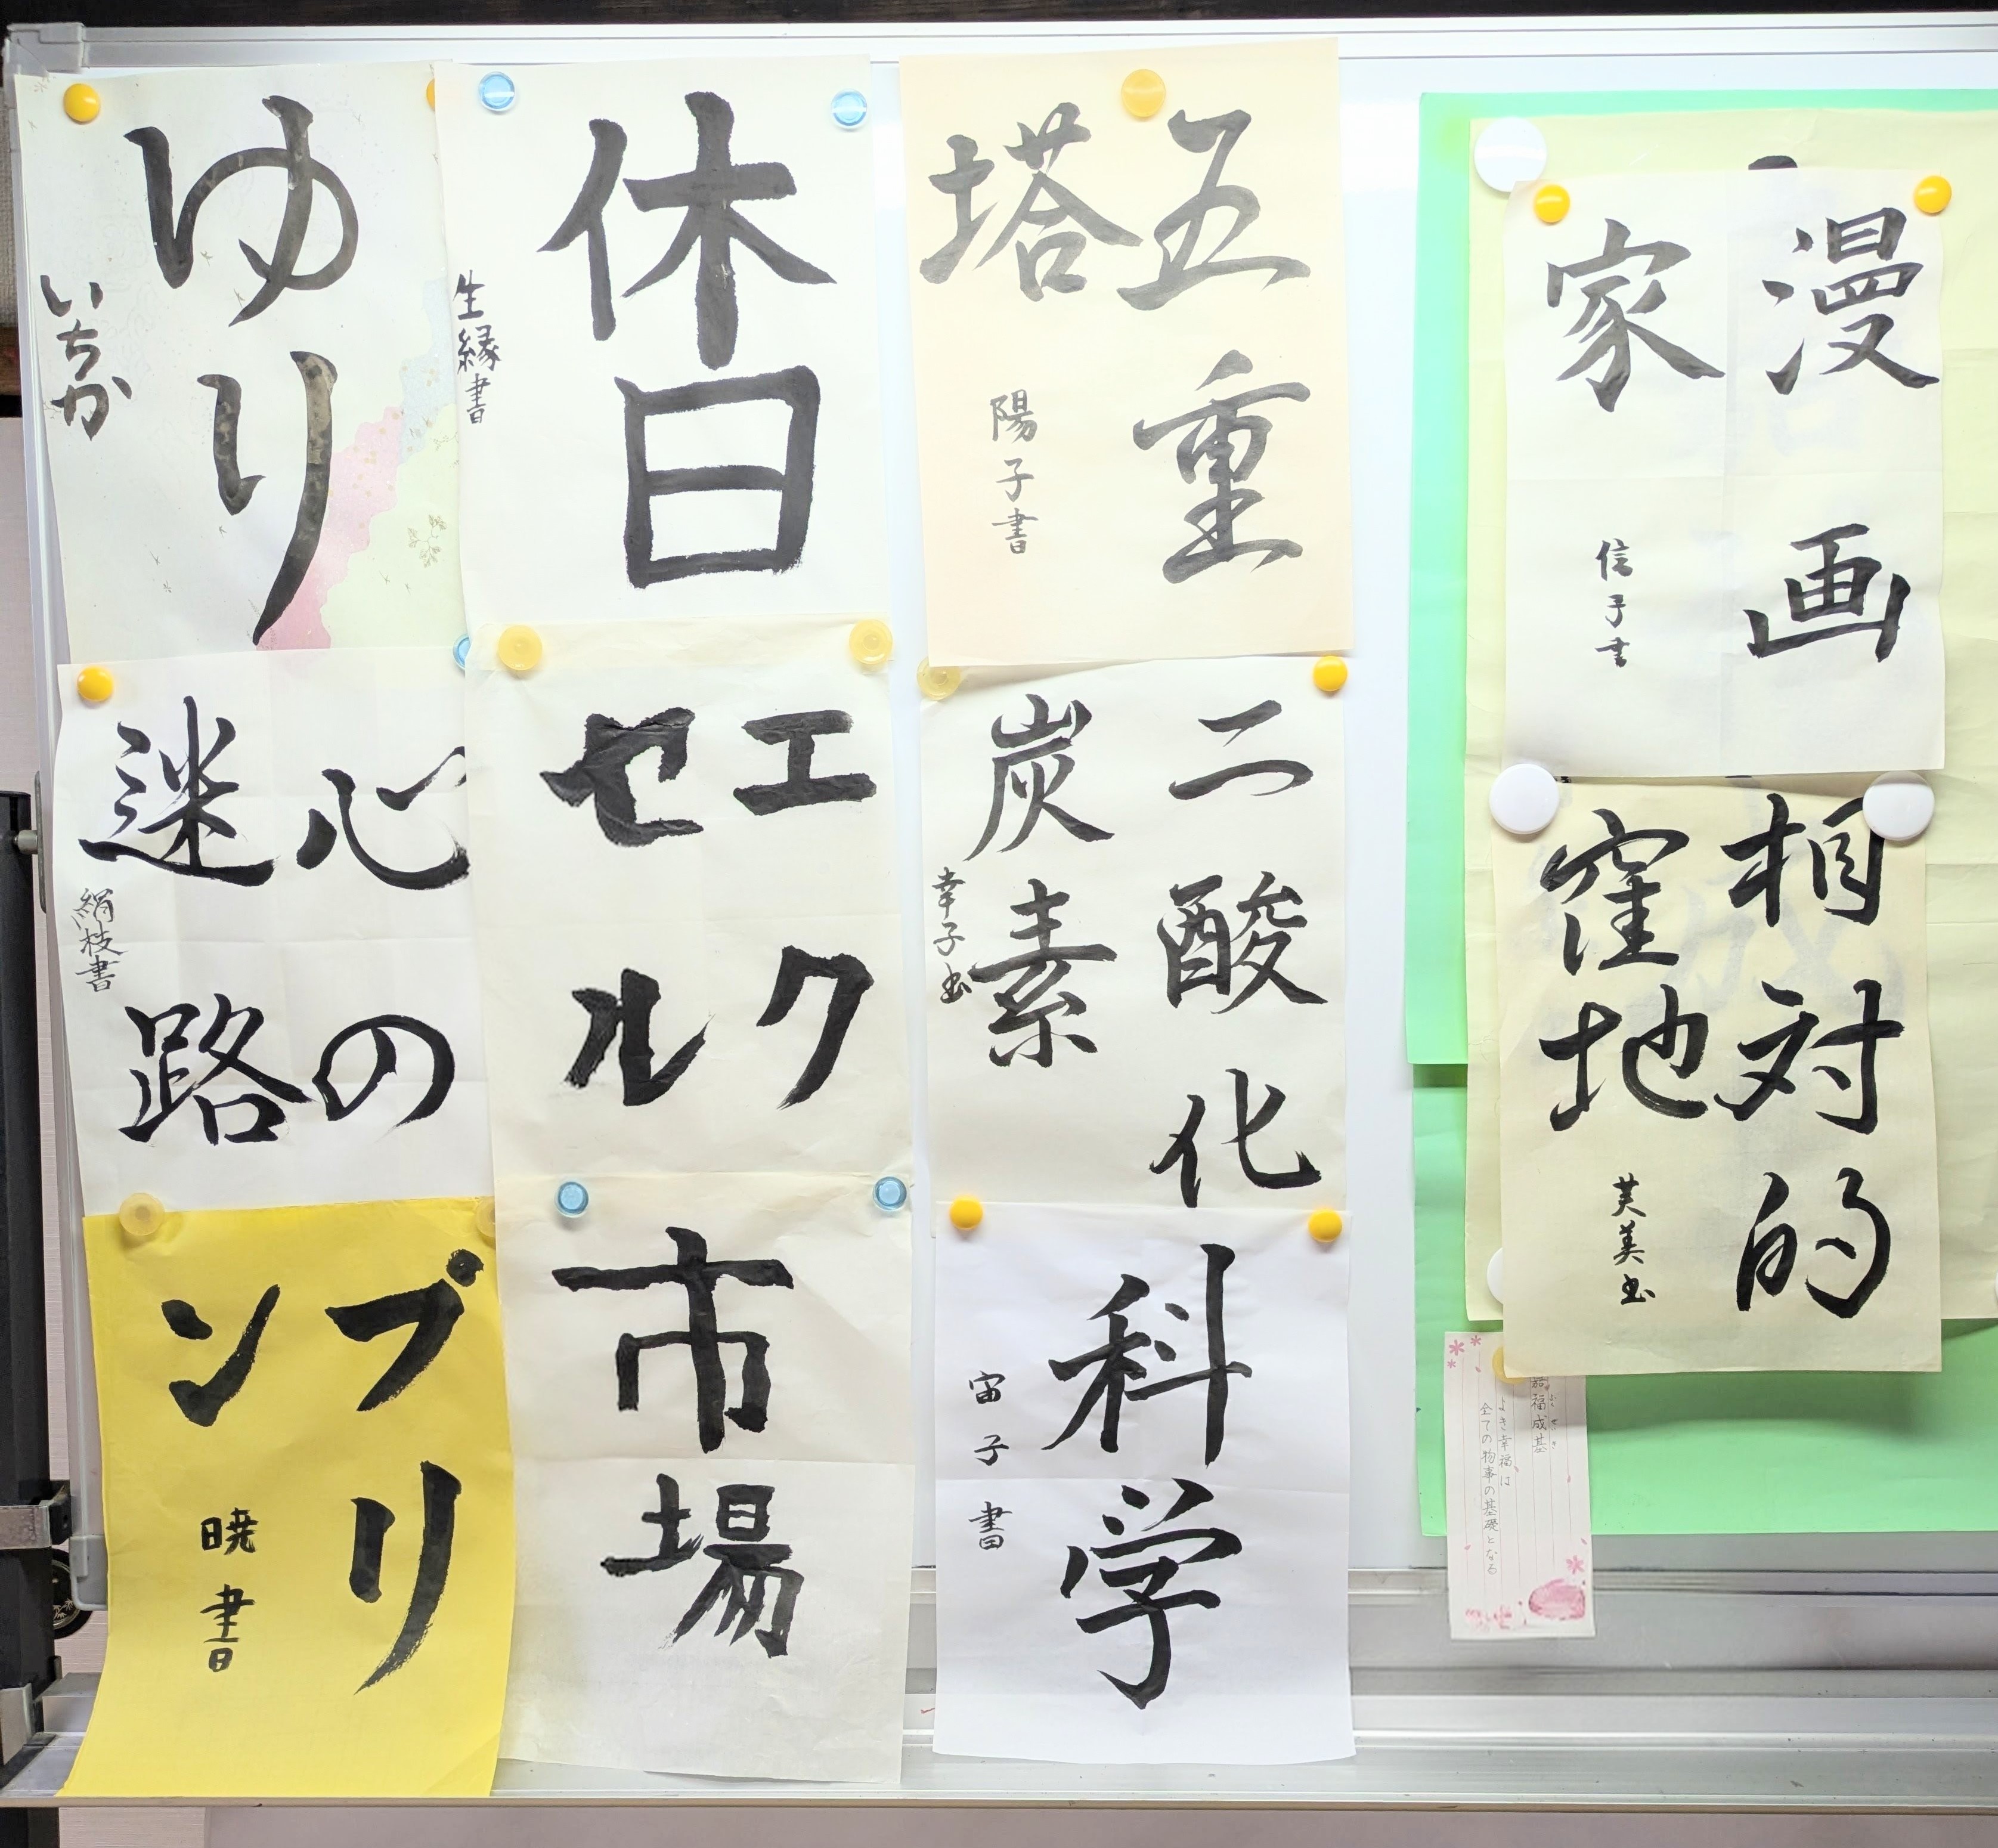 漫画
家
信子書
相対的
窪地
芙美書
福成基
よき幸福は
全ての物事の基礎となる
五重
塔
陽子書
二酸化
炭素
幸子書
科学
宙子書
休日
生縁書
エク
セル
市場
ゆり
いちか
心の
迷路
絹枝書
プリ
ン
暁書